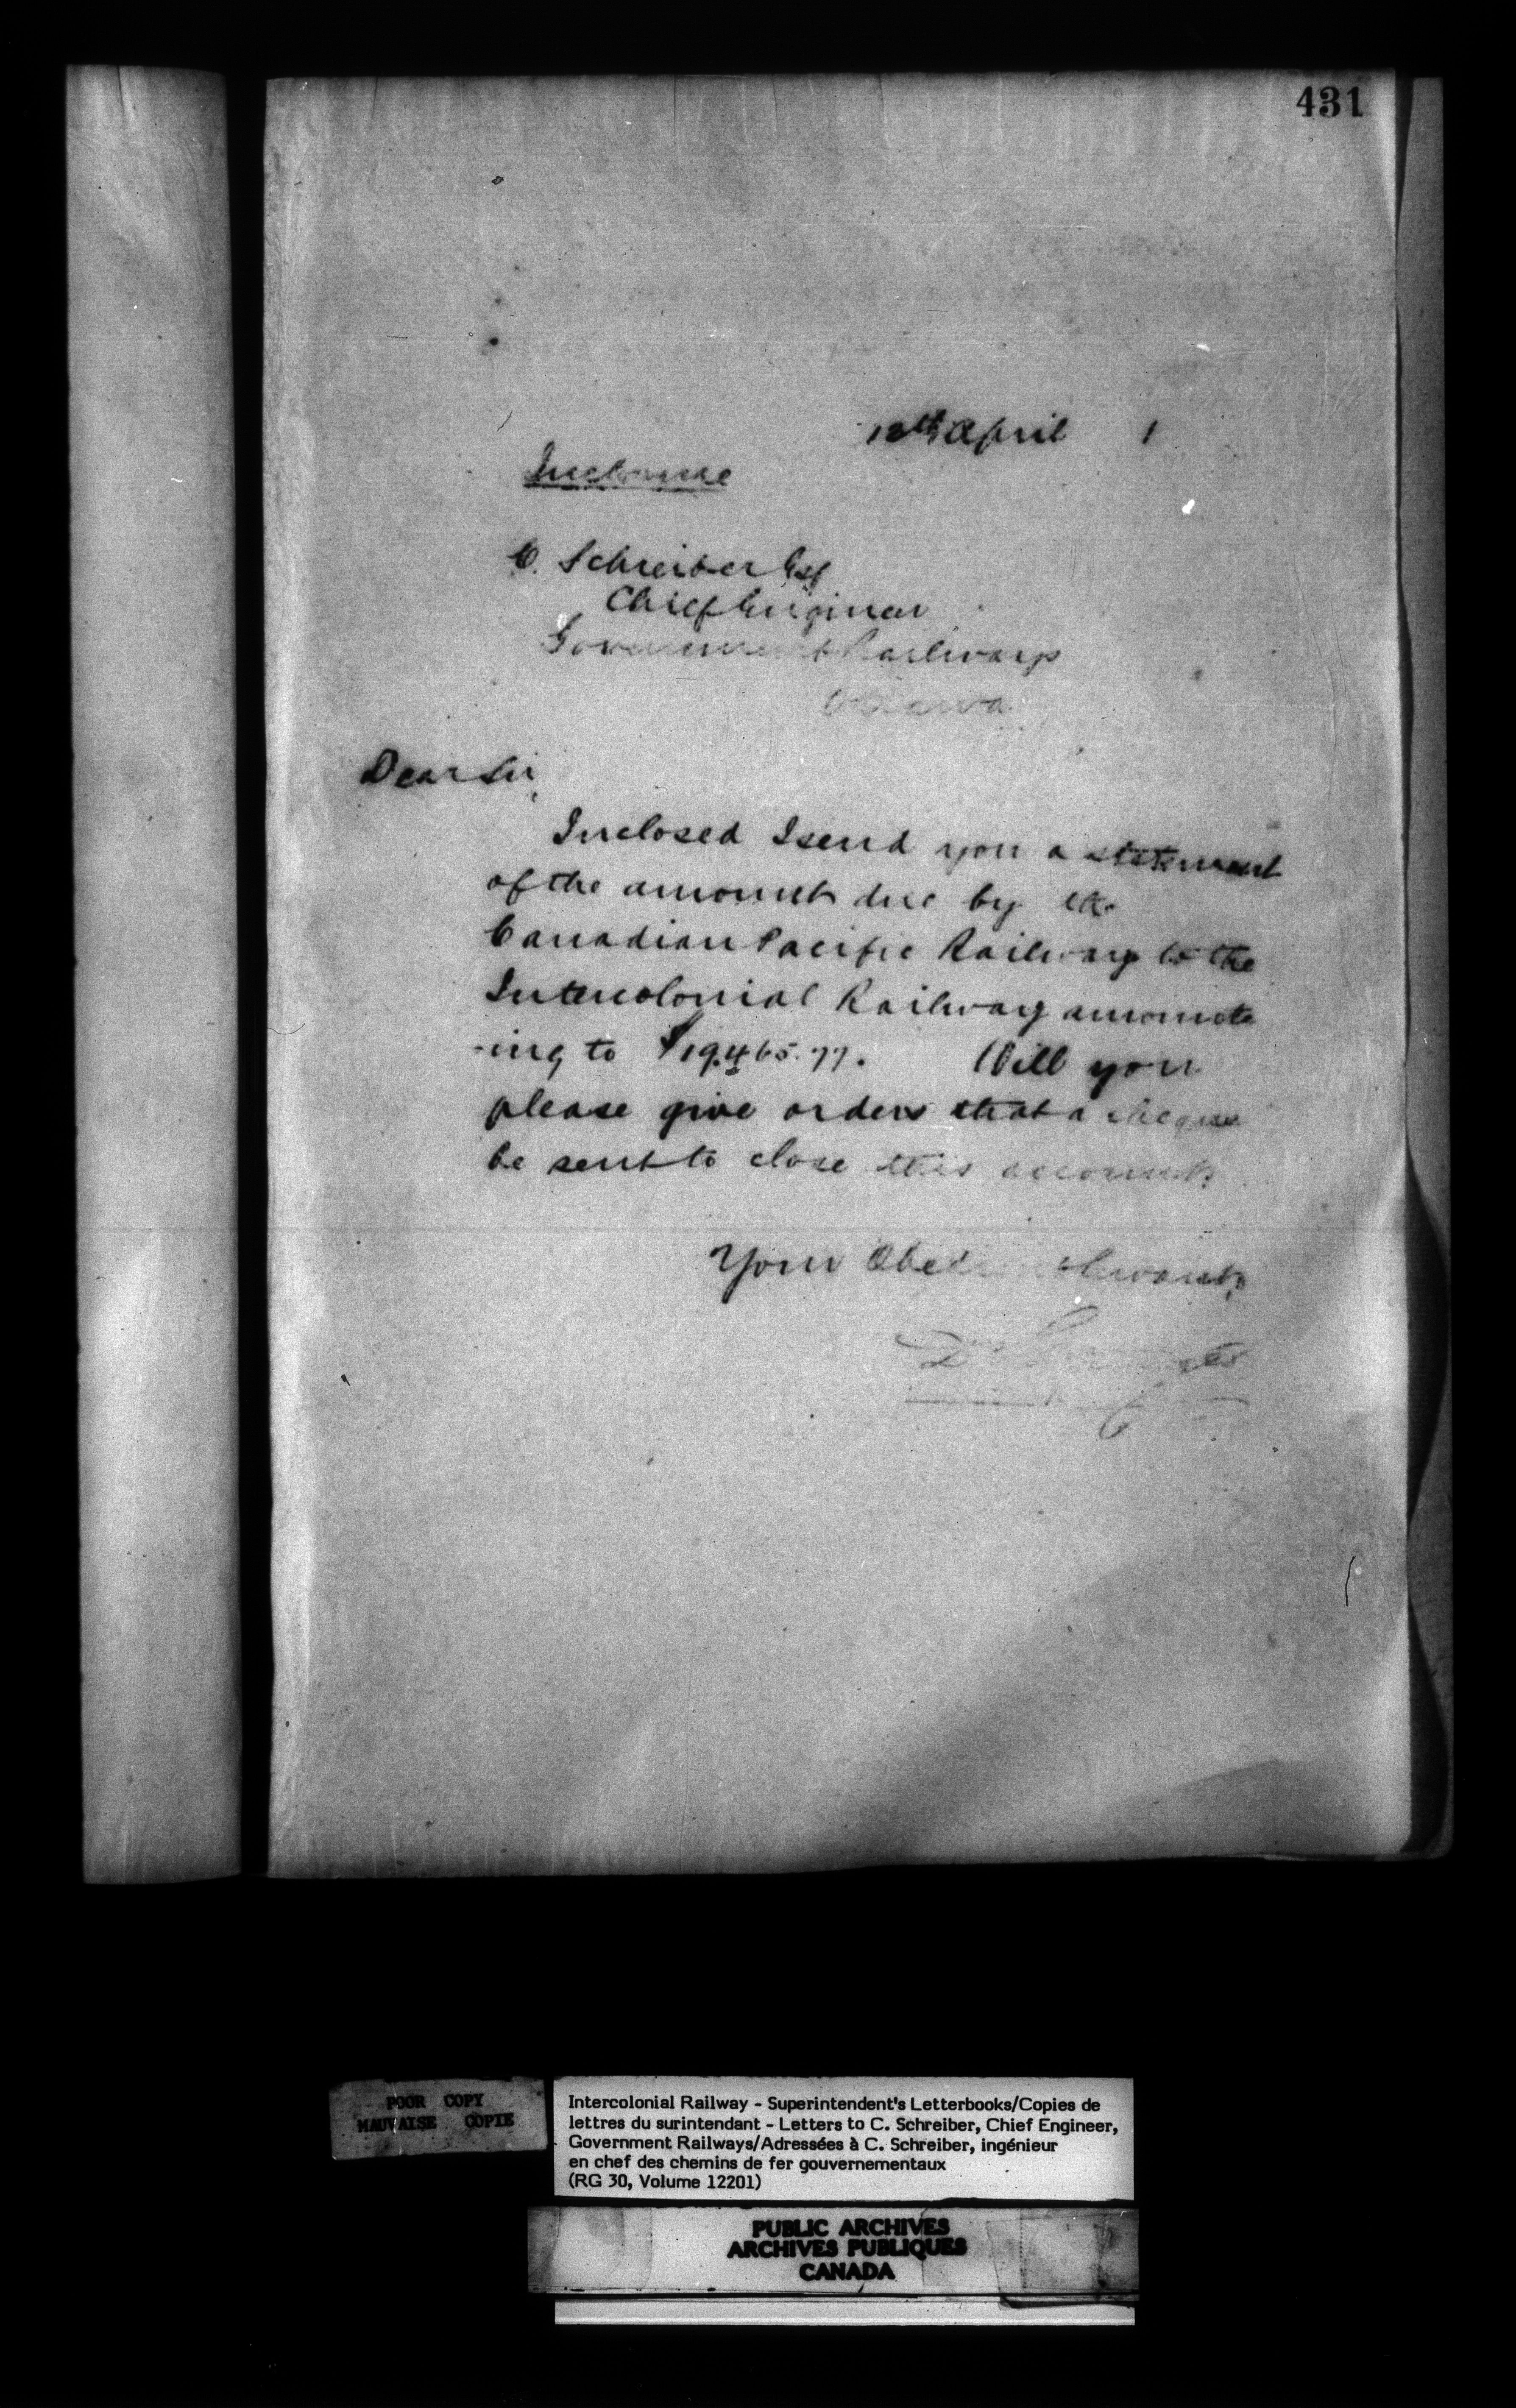 431
12th April 1
Inclosure
C. Schreiber Esq
Chief Engineer
Government Railways
Ottawa
Dear Sir,
Inclosed I send you a statement
of the amount due by the
Canadian Pacific Railway to the
Intercolonial Railway amount
-ing to $19.465.77. Will you
please give orders that a cheque
be sent to close this account.
Your Obedient Servant,
POOR COPY
MAUVAISE COPIE
Intercolonial Railway - Superintendent's Letterbooks/Copies de
lettres du surintendant - Letters to C. Schreiber, Chief Engineer,
Government Railways/Adressées à C. Schreiber, ingénieur
en chef des chemins de fer gouvernementaux
(RG 30, Volume 12201)
PUBLIC ARCHIVES
ARCHIVES PUBLIQUES
CANADA